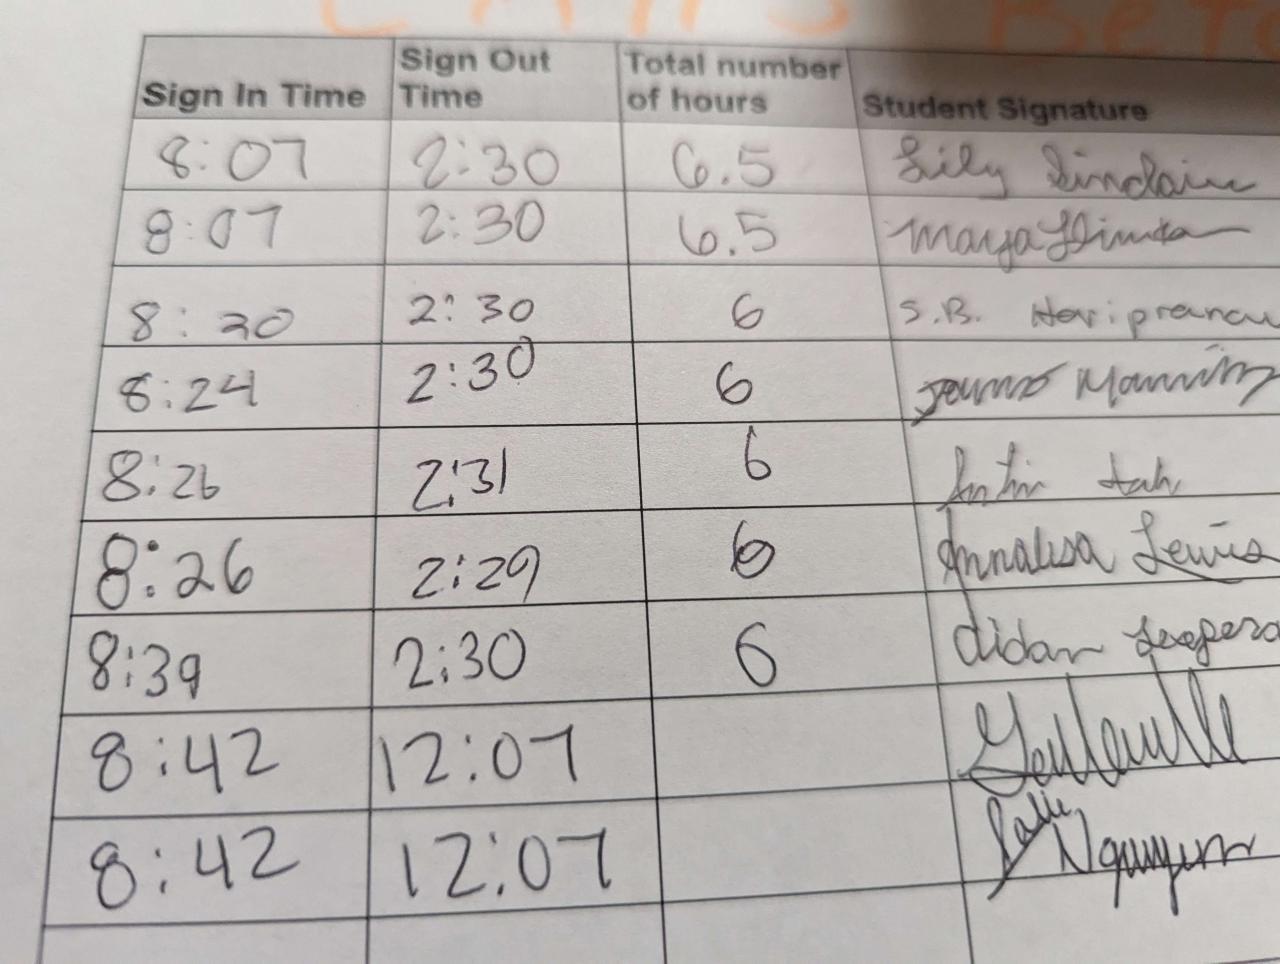 Sign In Time Sign Out Time Total number of hours Student Signature
8:07 2:30 6.5 Lily Sinclair
8:07 2:30 6.5 Maya
8:20 2:30 6 S.B.
8:24 2:30 6
8:26 2:31 6
8:26 2:29 6 Annalisa Lewis
8:39 2:30 6 Aidan
8:42 12:07
8:42 12:07 Nguyen